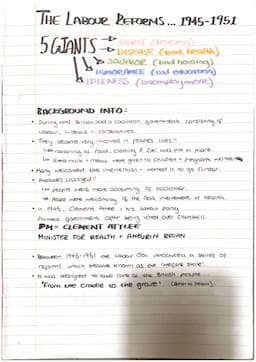 THE LABOUR REFORMS... 1945-1951
5 GIANTS → WANT (Poverty)
→ DISEASE (bad health)
→ SQUALOR (bad housing)
→ IGNORANCE (bad education)
→ IDLENESS (unemployment)
BACKGROUND INFO:
• During WWII Britain had a coalition government consisting of
Labour, Liberals + Conservatives.
• They became very involved in peoples lives!!
↳ rationing of food, clothing & fuel was put in place.
↳ Extra milk + meals were given to children + pregnant
• Many welcomed the intervention + wanted it to go further
• Attitudes changed!!
↳ people were more accepting of eachother.
↳ People were welcoming of the government in health.
• in 1945, Clement Attlee + his Labour party
formed government after being voted over Churchill.
PM = CLEMENT ATTLEE
MINISTER FOR HEALTH = ANEURIN BEVAN
• Between 1945-1951 the Labour Gov introduced a series of
reforms which became known as the 'welfare state'.
• It was designed to take care of the British people
"From the cradle to the grave"